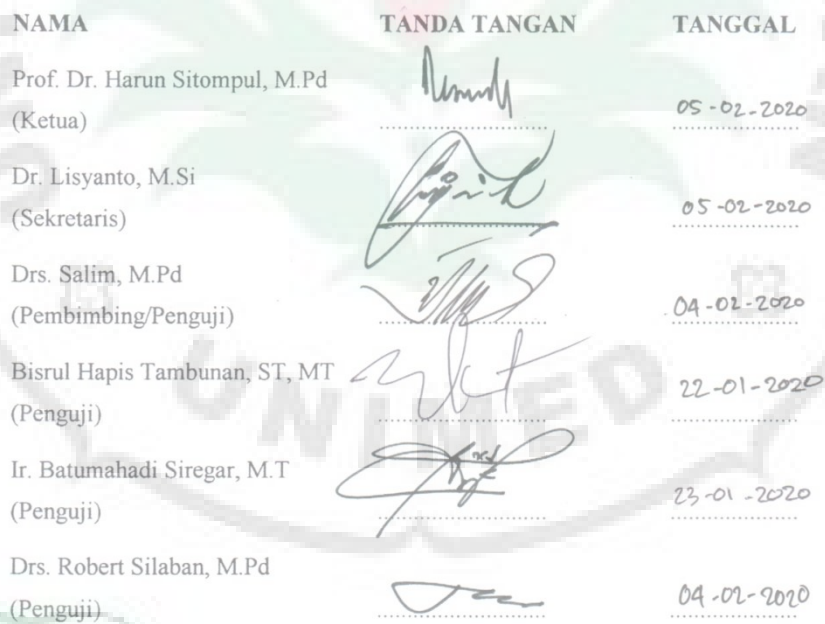 NAMA TANDA TANGAN TANGGAL
Prof. Dr. Harun Sitompul, M.Pd
(Ketua) 05-02-2020
Dr. Lisyanto, M.Si
(Sekretaris) 05-02-2020
Drs. Salim, M.Pd
(Pembimbing/Penguji) 04-02-2020
Bisrul Hapis Tambunan, ST, MT
(Penguji) 22-01-2020
Ir. Batumahadi Siregar, M.T
(Penguji) 23-01-2020
Drs. Robert Silaban, M.Pd
(Penguji) 04-02-2020
UNIMED